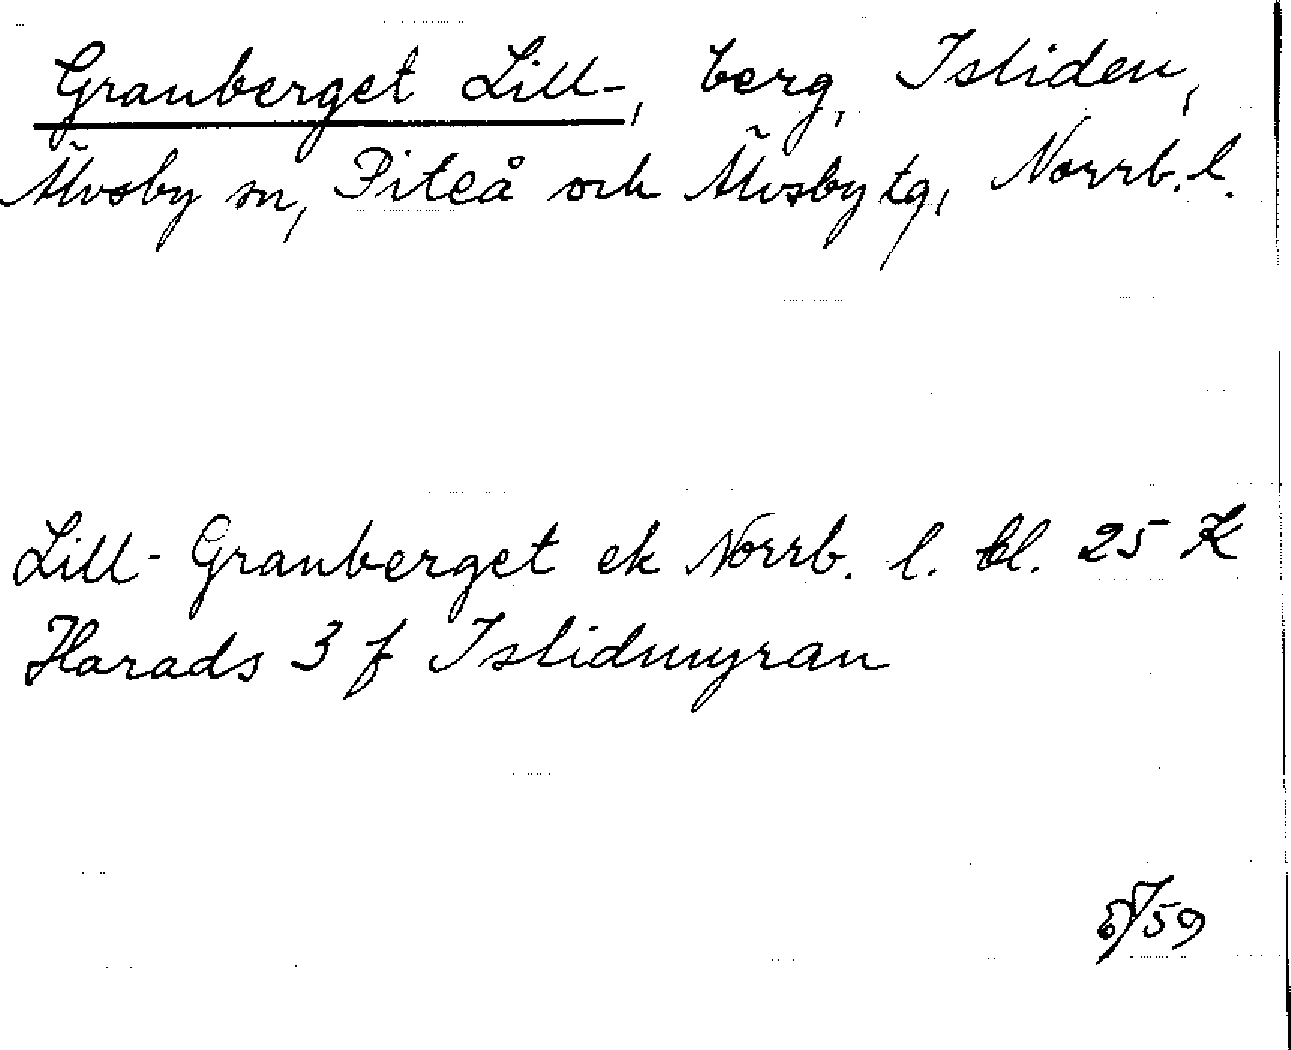 Granberget Lill-, berg, Isliden,
Älvsby sn, Piteå och Älvsby tg, Norrb. l.
Lill-Granberget ek Norrb. l. bl. 25 K
Harads 3 f Islidmyran